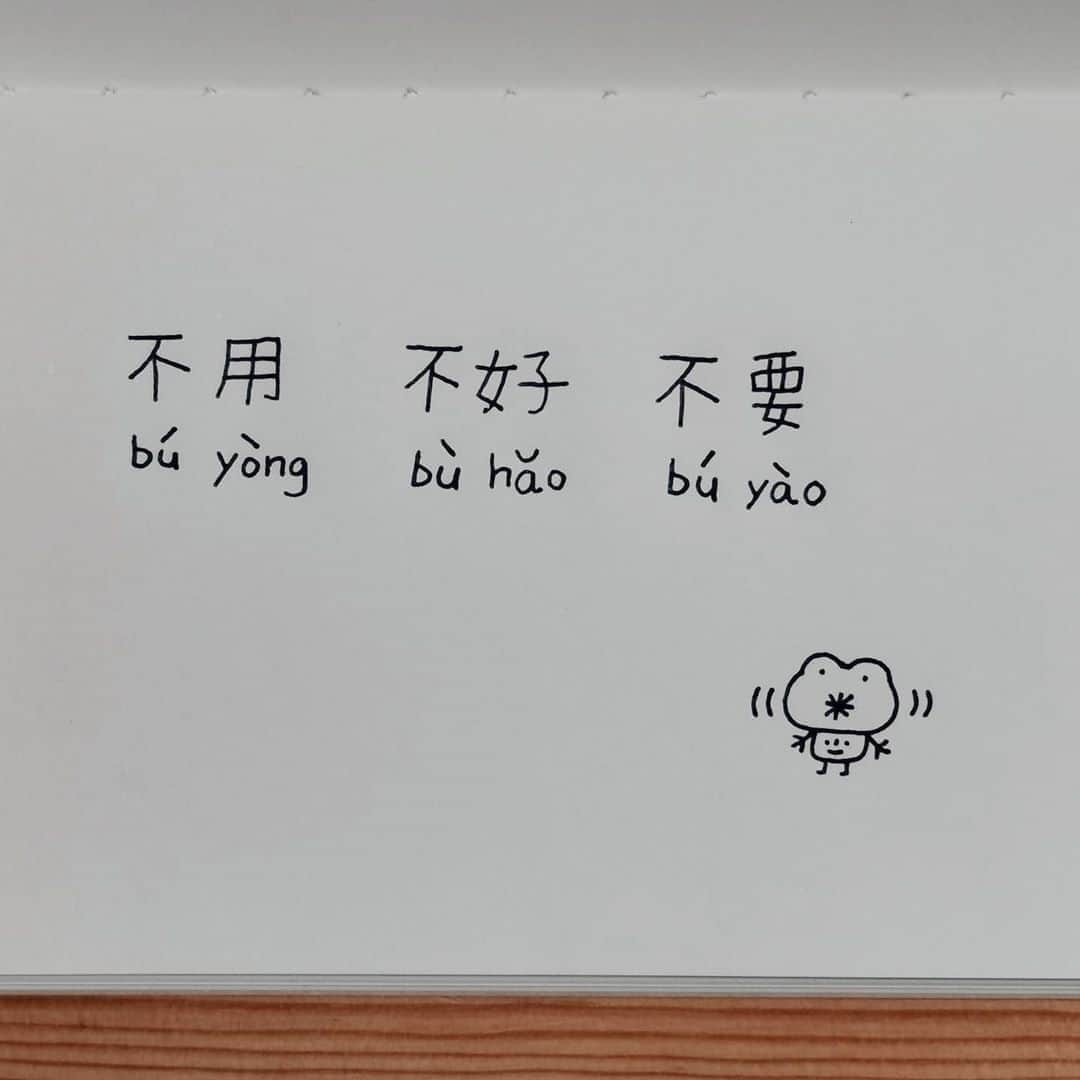 不用 不好 不要
bú yòng bù hǎo bú yào